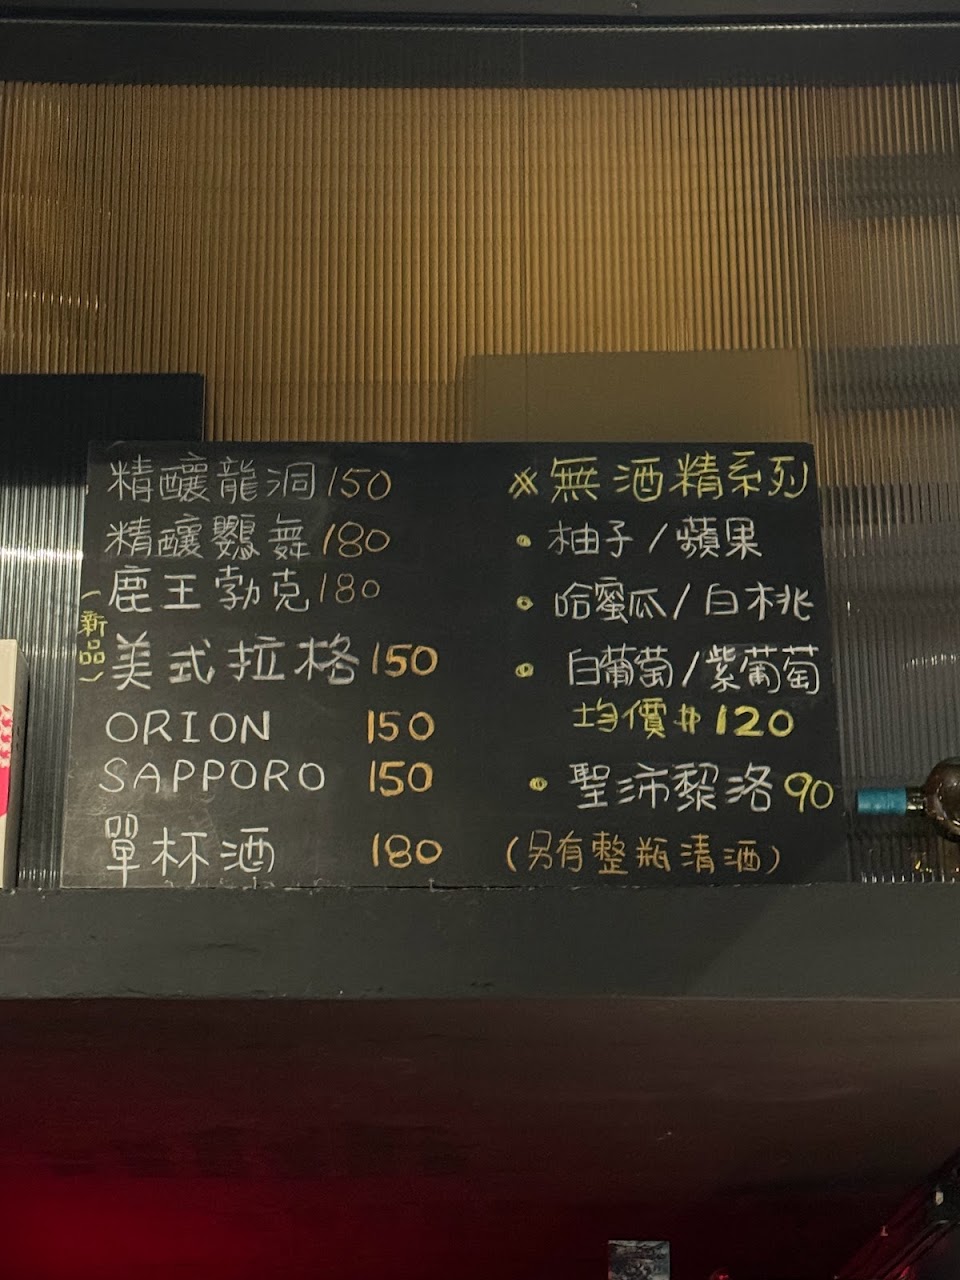 精釀龍洞150
精釀鸚舞180
鹿王勃克180
(新品)
美式拉格150
ORION 150
SAPPORO 150
單杯酒 180
※無酒精系列
• 柚子/蘋果
• 哈蜜瓜/白桃
• 白葡萄/紫葡萄
均價#120
• 聖沛黎洛90
(另有整瓶清酒)